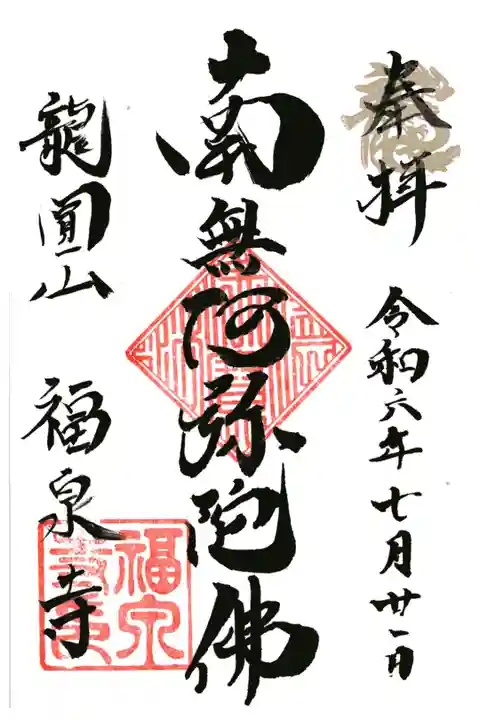 奉拝
令和六年七月廿一日
南無阿弥陀佛
龍圓山 福泉寺